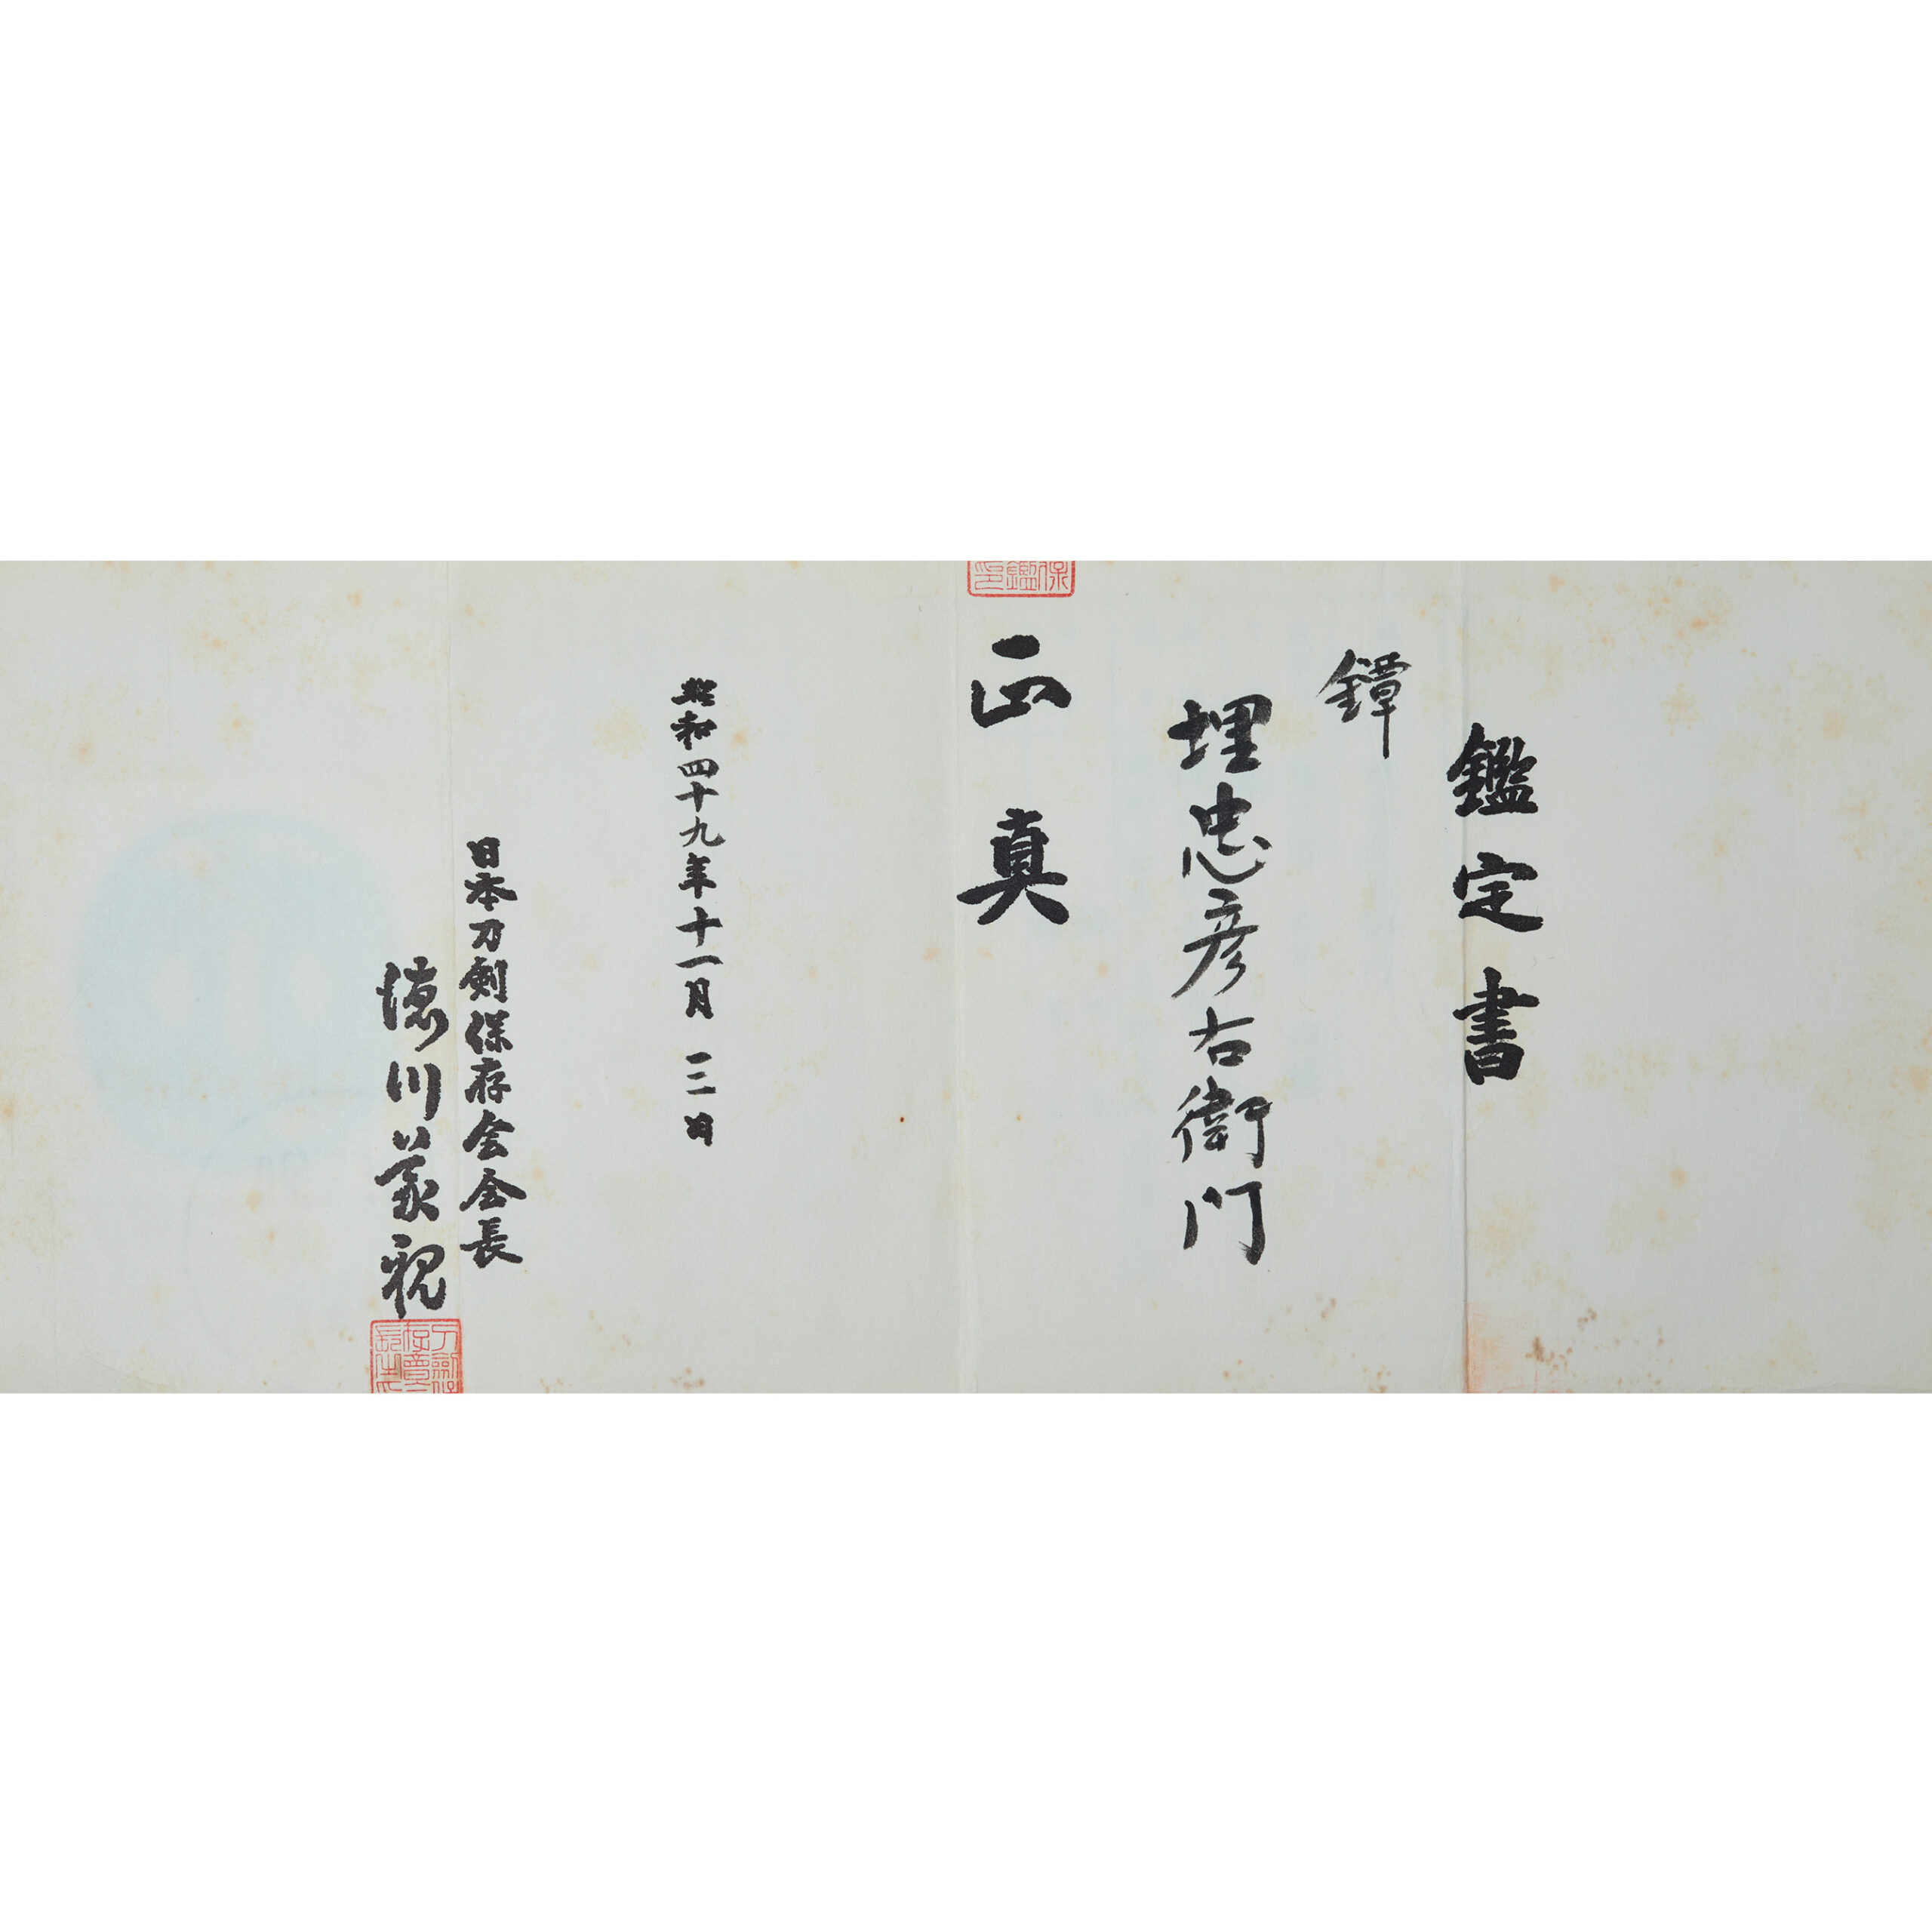 鑑定書
鐔
埋忠彦右衛門
正真
昭和四十九年十一月三日
日本刀剣保存会会長
徳川義親